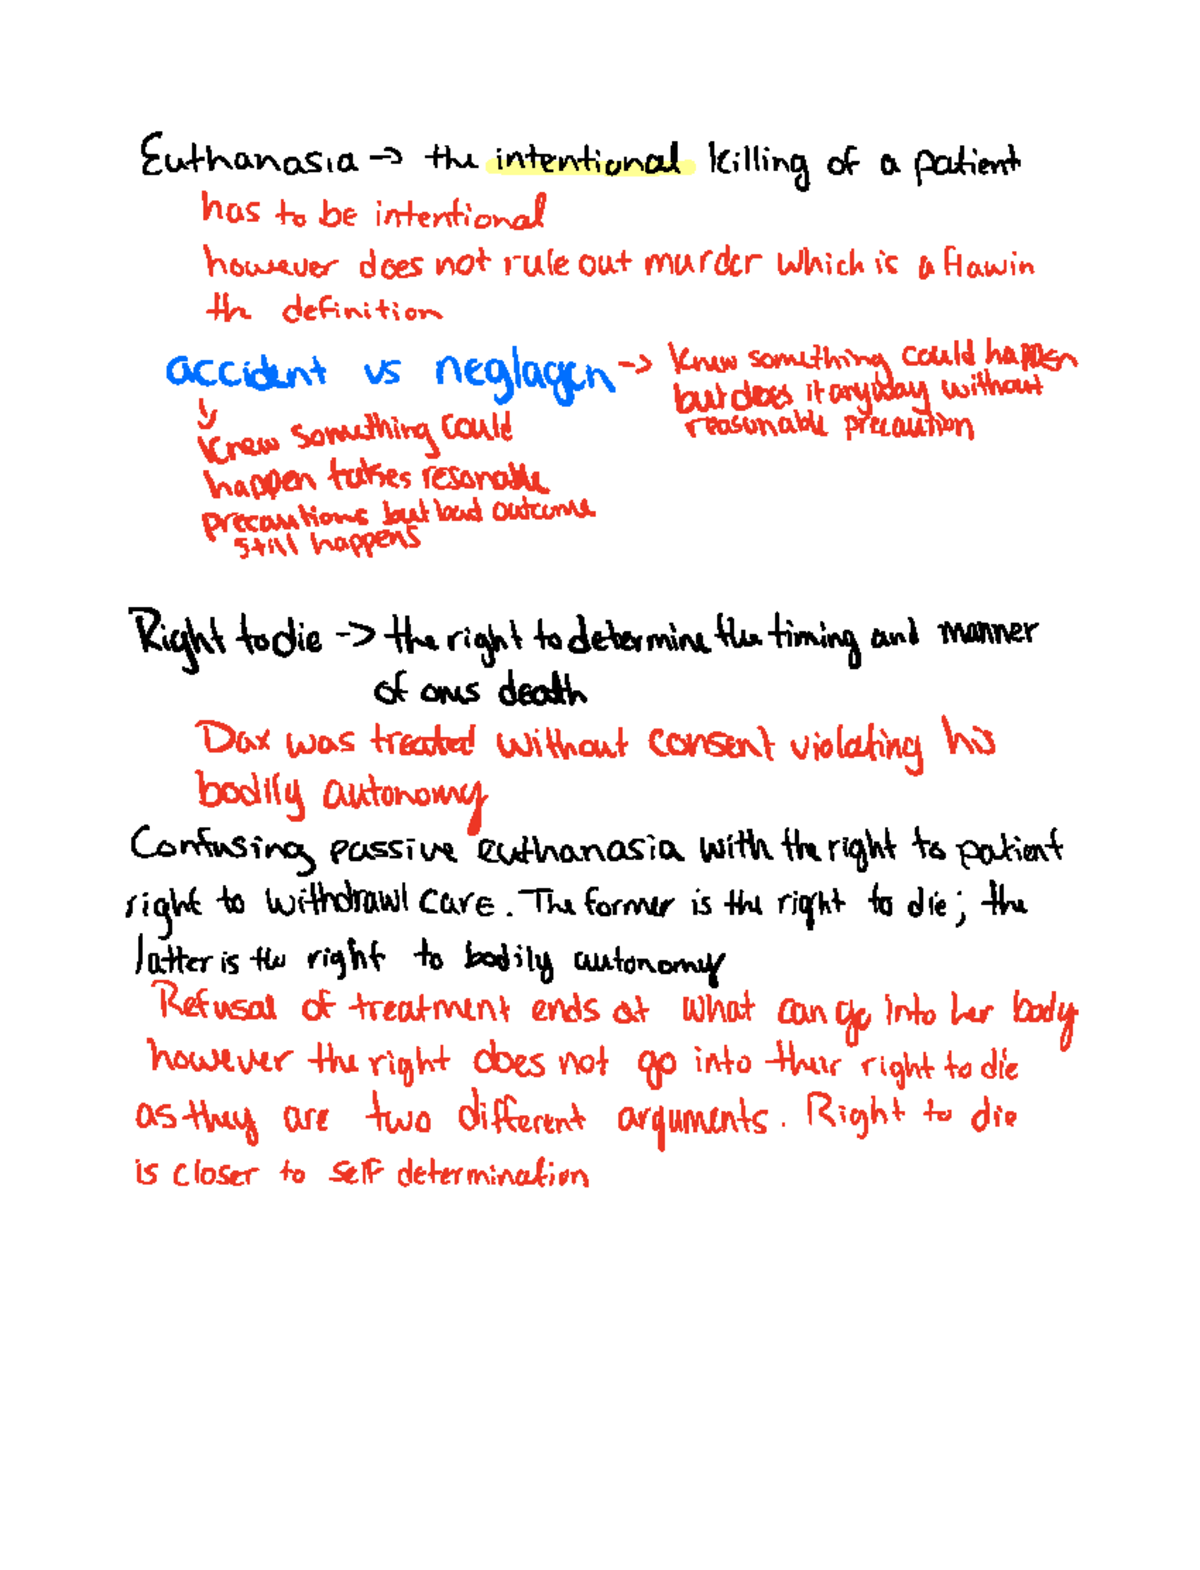 Euthanasia -> the intentional killing of a patient
has to be intentional
however does not rule out murder which is a flaw in
th definition
accident vs neglagen -> Knew something could happen
but does it anyway without
reasonable precaution
Knew something could
happen takes resonable
precautions but bad outcome
still happens
Right to die -> the right to determine the timing and manner
of ones death
Dax was treated without consent violating his
bodily autonomy
Confusing passive euthanasia with the right to patient
right to withdrawl care. The former is the right to die; the
latter is the right to bodily autonomy
Refusal of treatment ends at what can go into her body
however the right does not go into their right to die
as they are two different arguments. Right to die
is closer to self determination